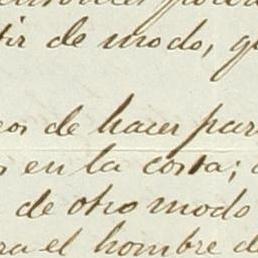 tir de modo, q
os de hacer par
s en la costa;
de otro modo
ra el hombre d